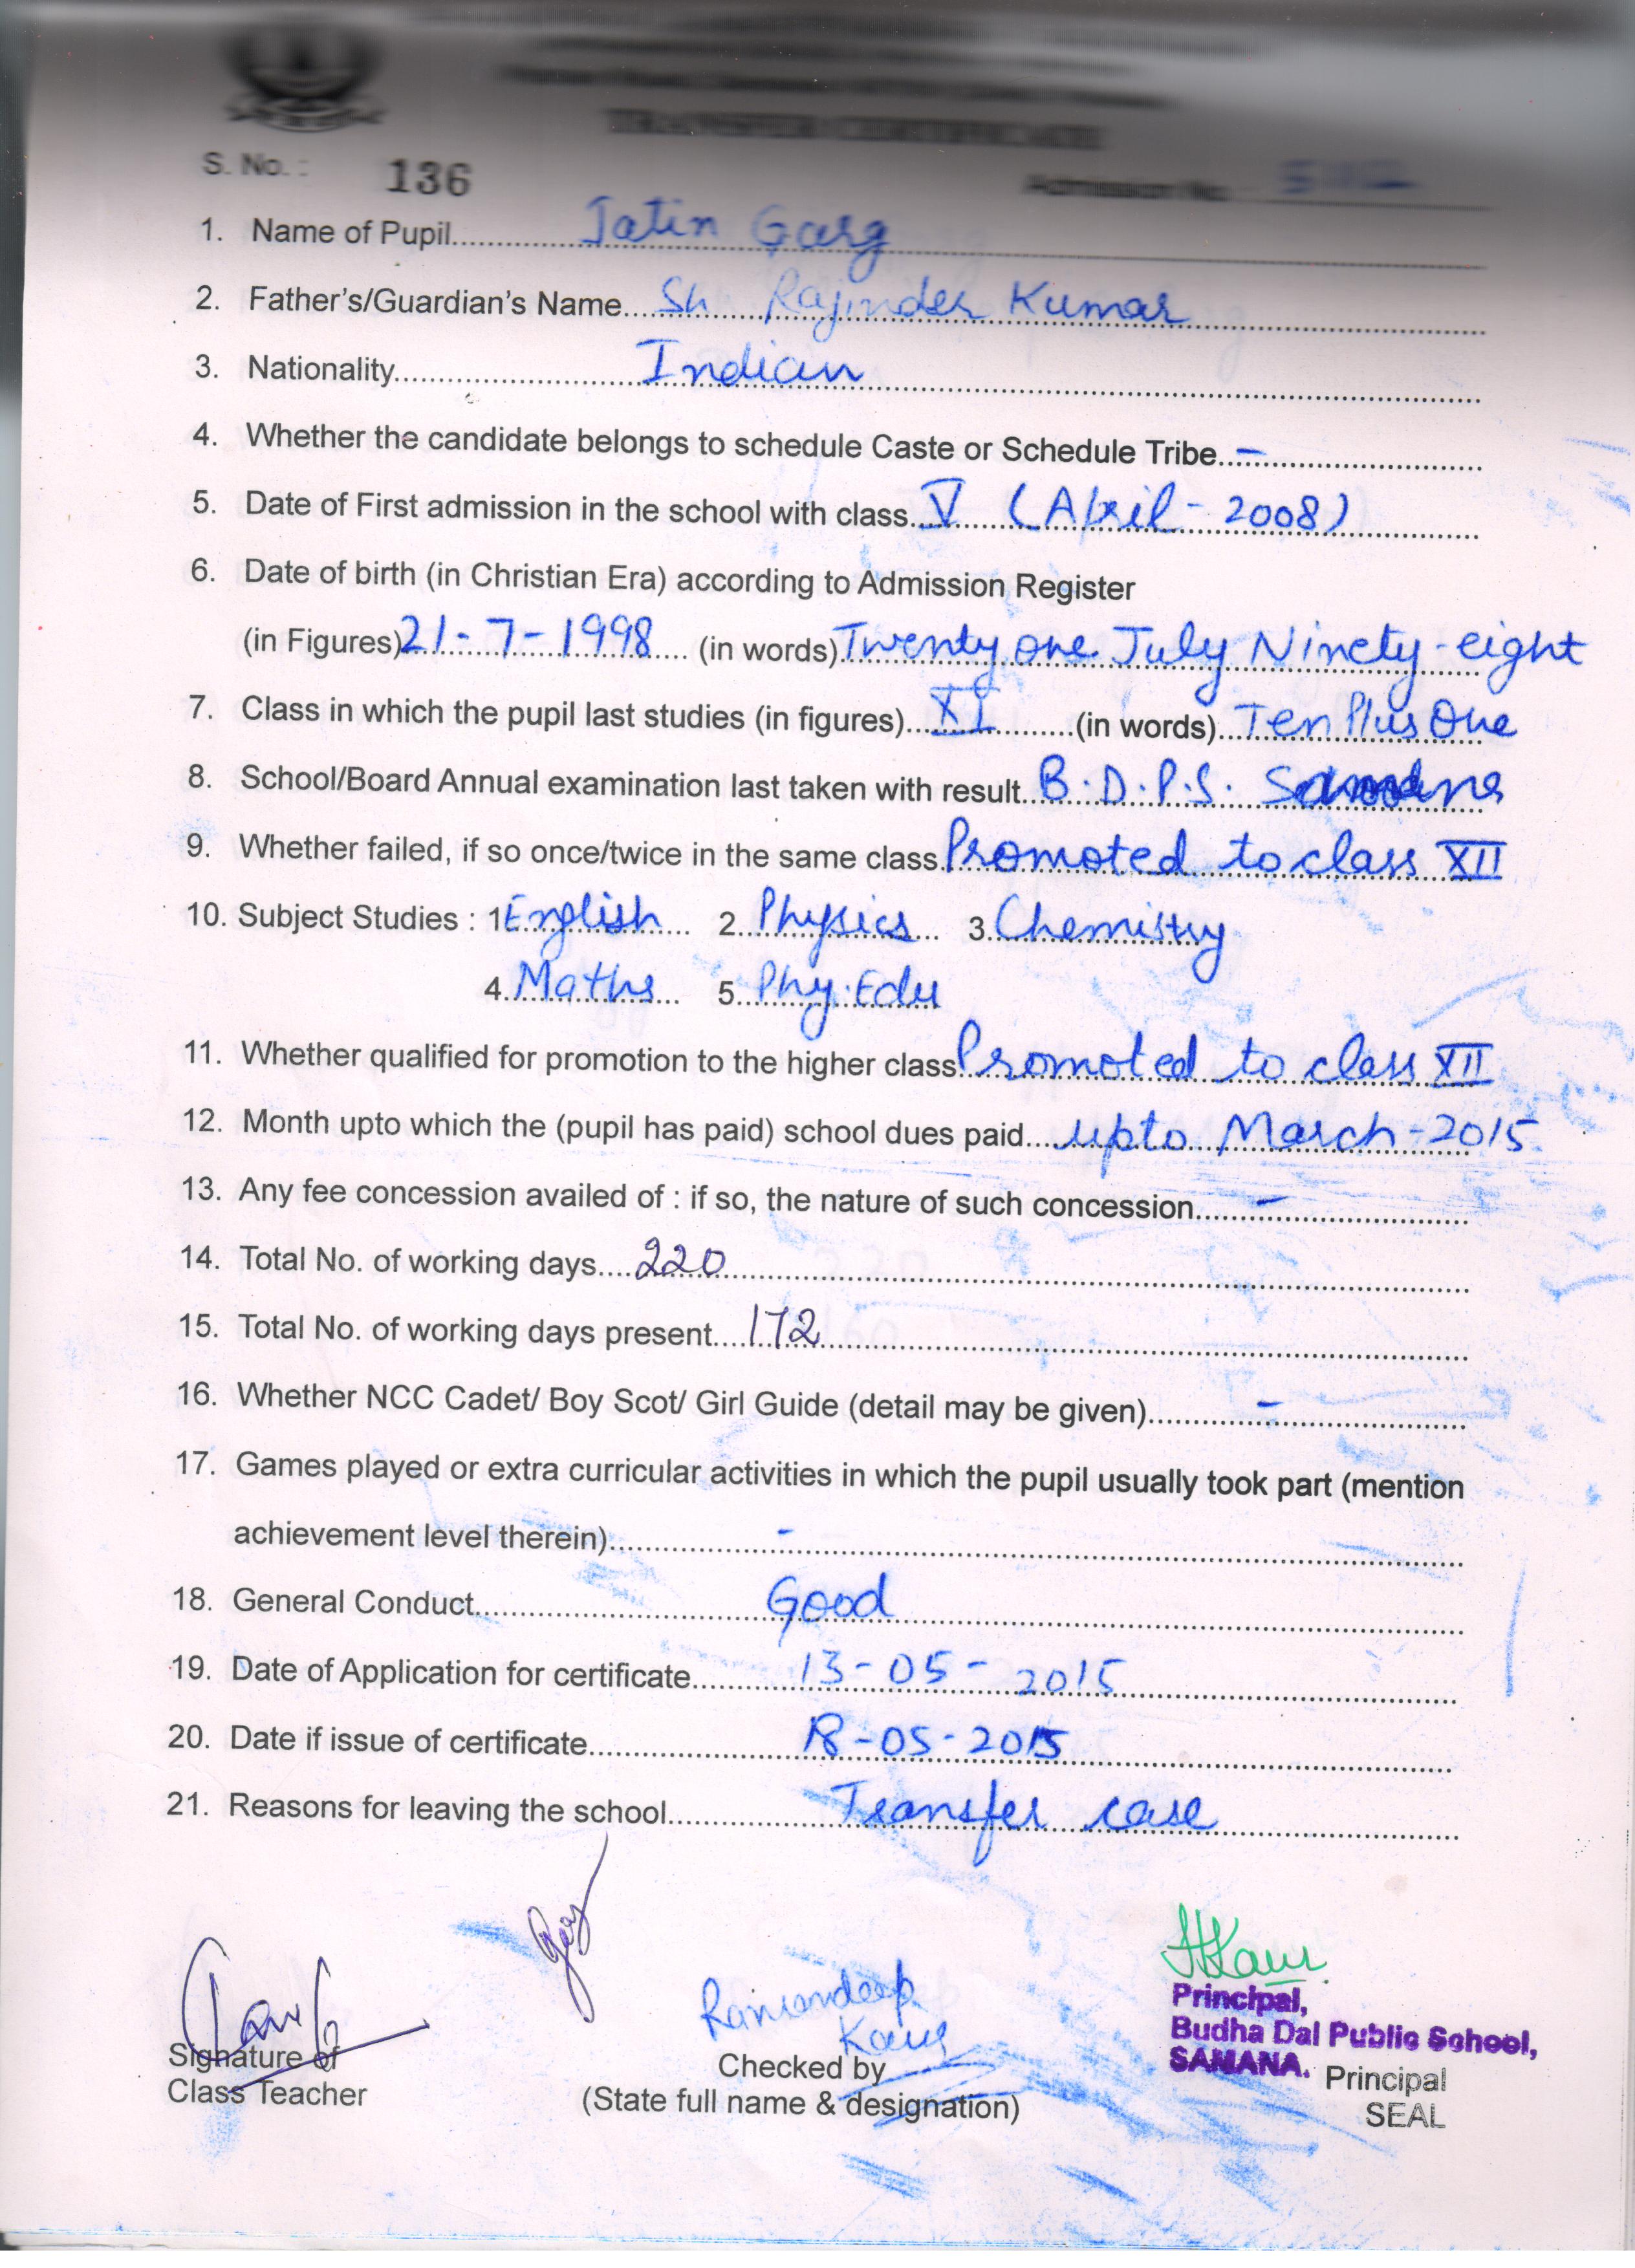 TRANSFER CERTIFICATE
S. No. : 136 Admission No.
1. Name of Pupil Jatin Garg
2. Father's/Guardian's Name Sh Rajinder Kumar
3. Nationality Indian
4. Whether the candidate belongs to schedule Caste or Schedule Tribe –
5. Date of First admission in the school with class V (April - 2008)
6. Date of birth (in Christian Era) according to Admission Register
(in Figures) 21-7-1998 (in words) Twenty one July Ninety-eight
7. Class in which the pupil last studies (in figures) XI (in words) Ten Plus One
8. School/Board Annual examination last taken with result B.D.P.S. Samana
9. Whether failed, if so once/twice in the same class Promoted to class XII
10. Subject Studies : 1 English 2. Physics 3. Chemistry
4. Maths 5. Phy. Edu
11. Whether qualified for promotion to the higher class Promoted to class XII
12. Month upto which the (pupil has paid) school dues paid upto March-2015
13. Any fee concession availed of : if so, the nature of such concession –
14. Total No. of working days 220
15. Total No. of working days present 172
16. Whether NCC Cadet/ Boy Scot/ Girl Guide (detail may be given) –
17. Games played or extra curricular activities in which the pupil usually took part (mention
achievement level therein) –
18. General Conduct Good
19. Date of Application for certificate 13-05-2015
20. Date if issue of certificate 18-05-2015
21. Reasons for leaving the school Transfer case
Ramandeep
Kaur
Principal,
Budha Dal Public School,
SAMANA.
Signature of
Class Teacher
Checked by
(State full name & designation)
Principal
SEAL